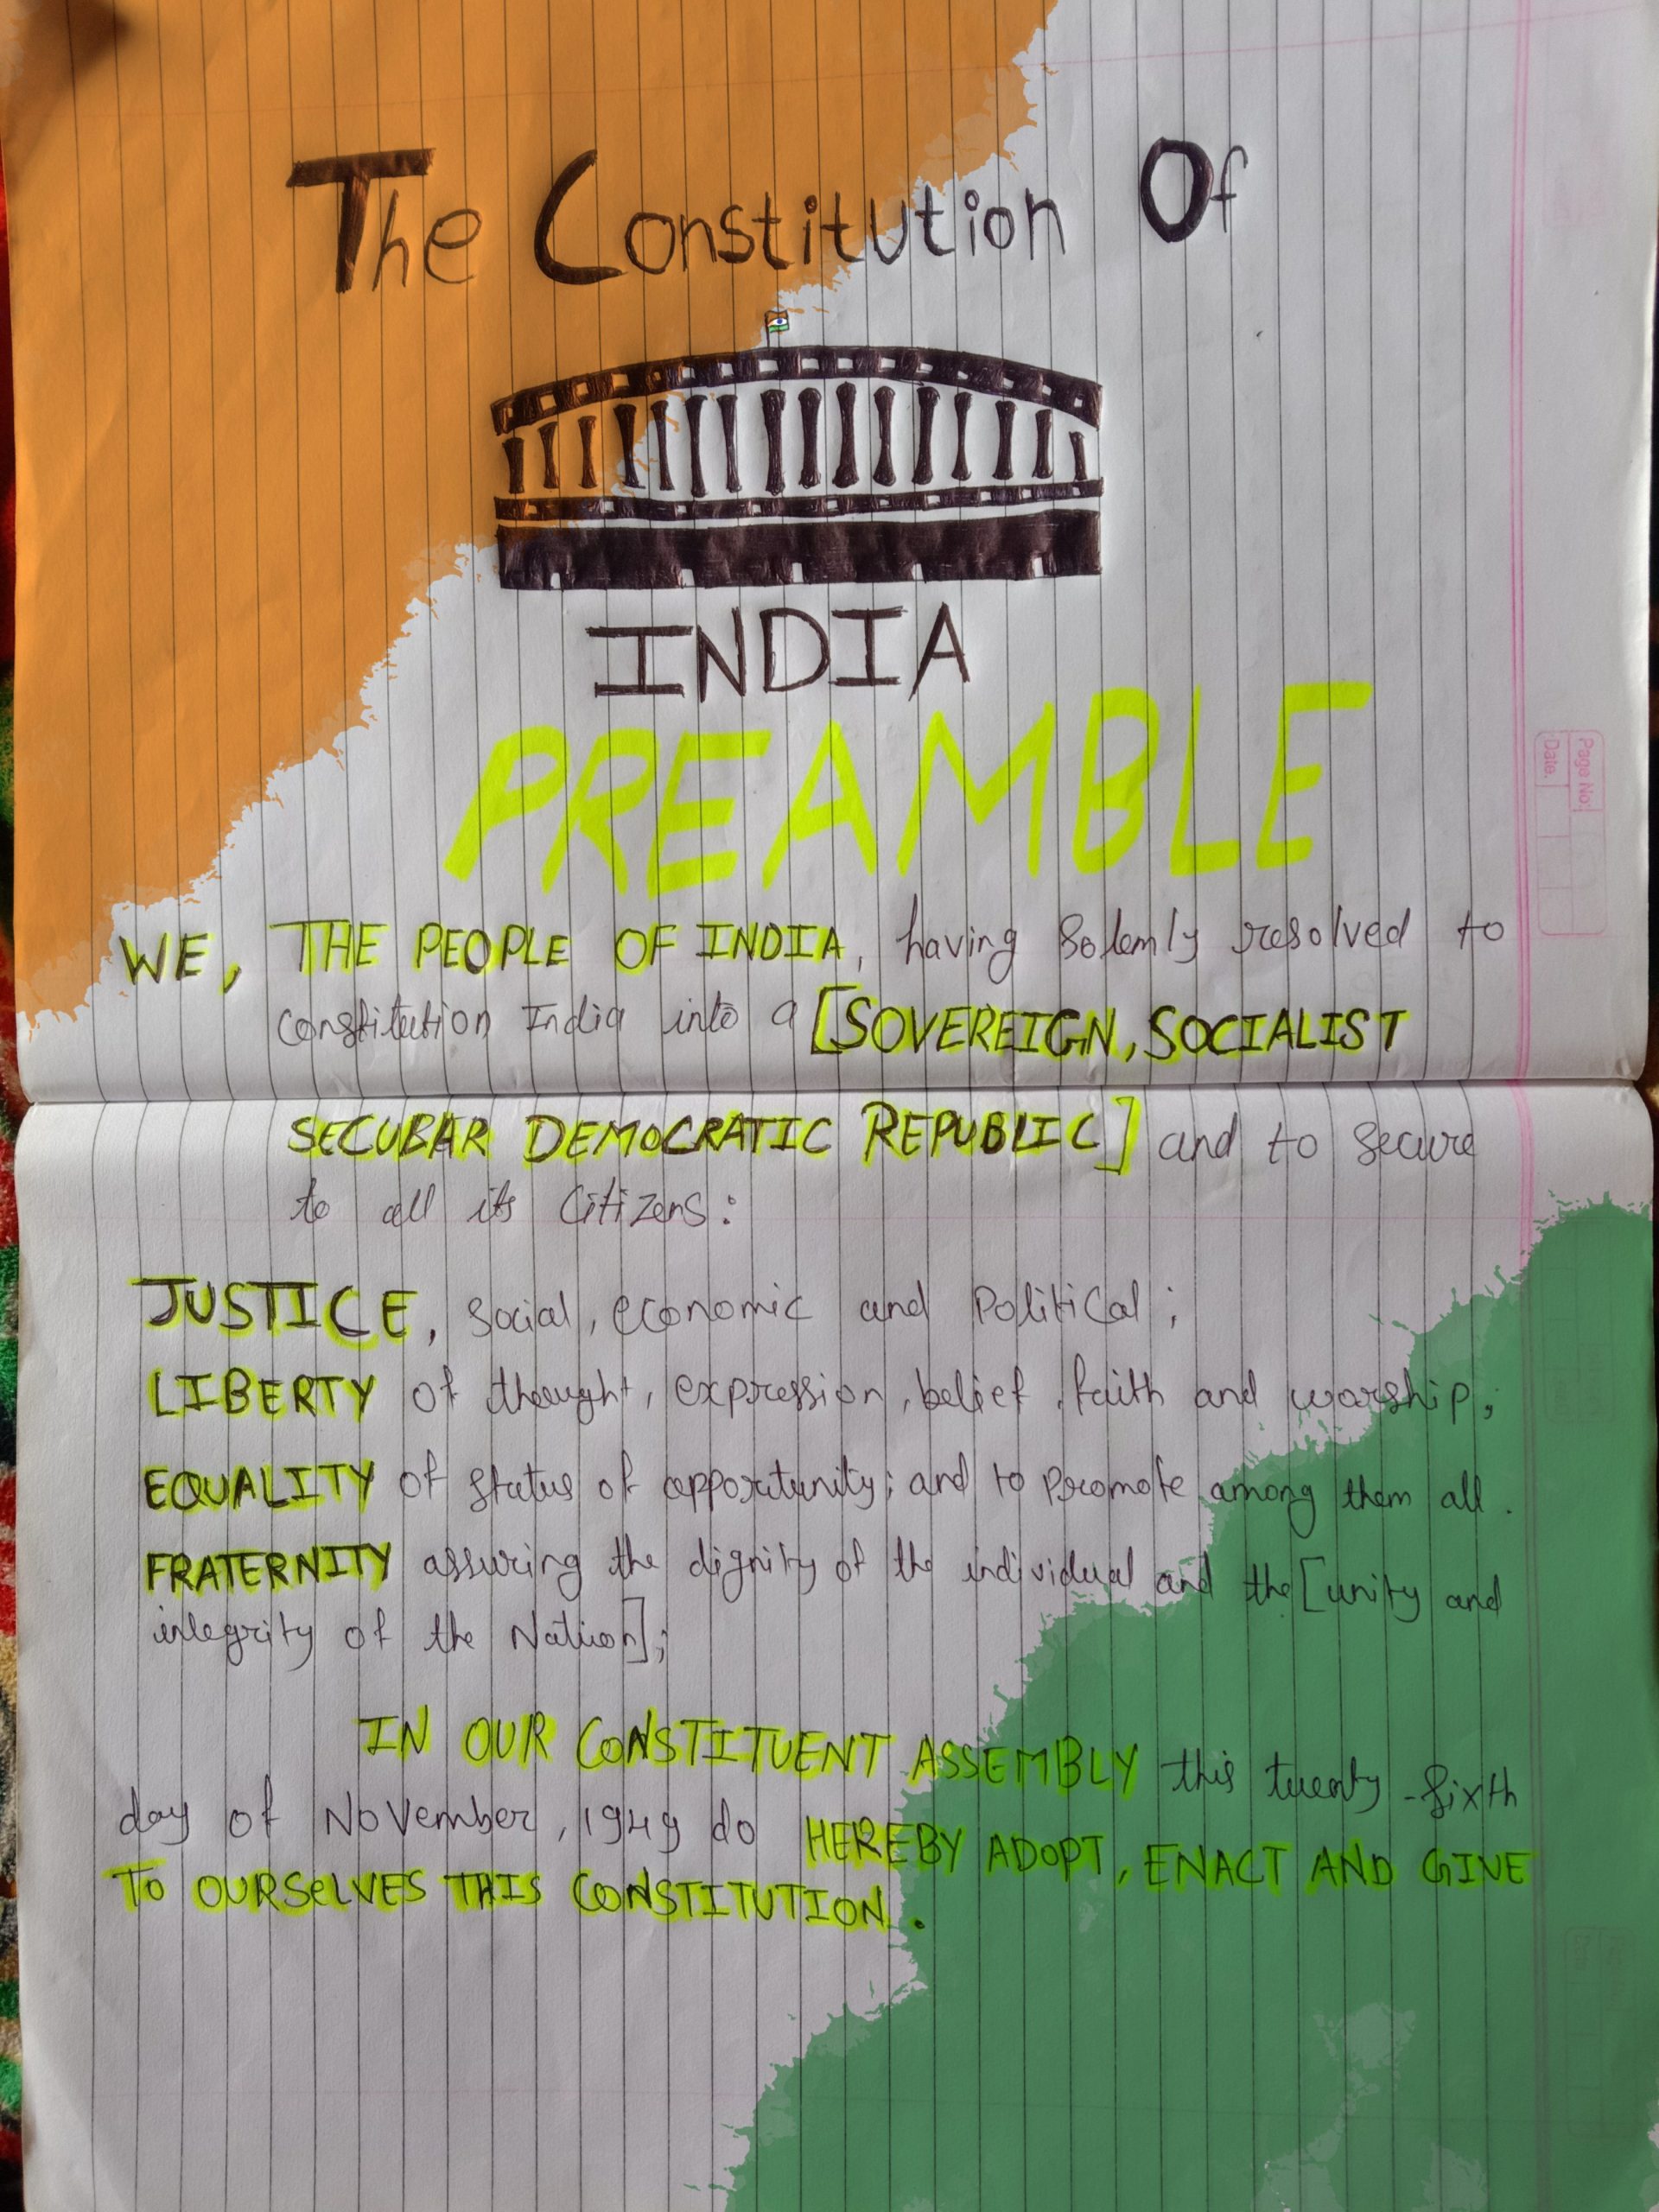 The Constitution Of
INDIA
PREAMBLE
WE, THE PEOPLE OF INDIA, having Solemly resolved to
constitution India into a [SOVEREIGN, SOCIALIST
SECUBAR DEMOCRATIC REPUBLIC] and to secure
to all its Citizens:
JUSTICE, Social, economic and Political;
LIBERTY of thought, expression, belief, faith and worship;
EQUALITY of status of opportunity; and to promote among them all.
FRATERNITY assuring the dignity of the individual and the [unity and
integrity of the Nation];
IN OUR CONSTITUENT ASSEMBLY this twenty-sixth
day of November, 1949 do HEREBY ADOPT, ENACT AND GIVE
To OURSELVES THIS CONSTITUTION.
Page No:
Date.